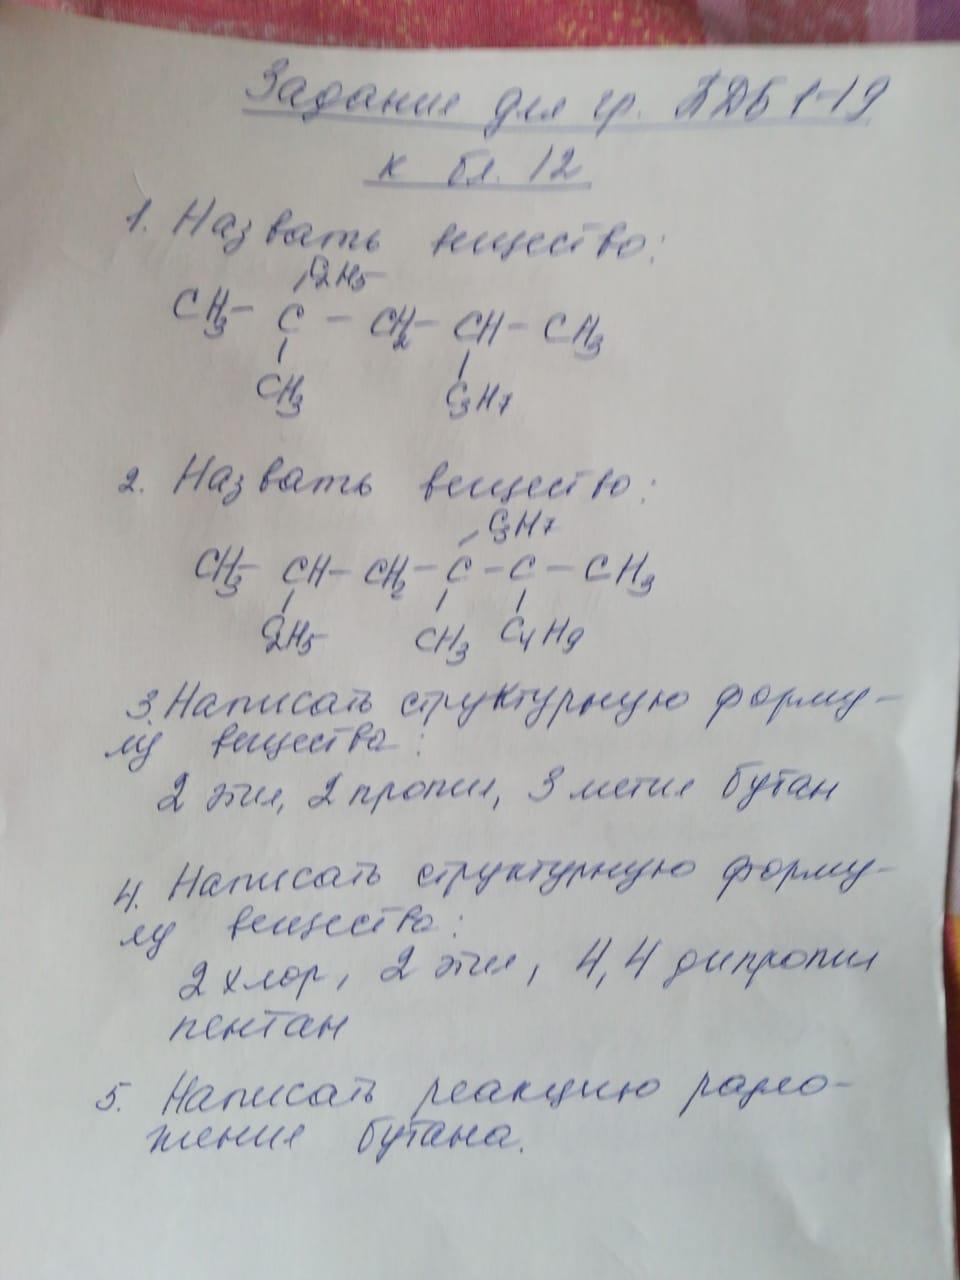 Задание для гр. ПДБ 1-19
к бл. 12
1. Назвать вещество:
C2H5
CH3 - C - CH2 - CH - CH3
CH3 C3H7
2. Назвать вещество:
C3H7
CH3 - CH - CH2 - C - C - CH3
C2H5 CH3 C4H9
3. Написать структурную форму-
лу вещества:
2 этил, 2 пропил, 3 метил бутан
4. Написать структурную форму-
лу вещества:
2 хлор, 2 этил, 4,4 дипропил
пентан
5. Написать реакцию разло-
жения бутана.